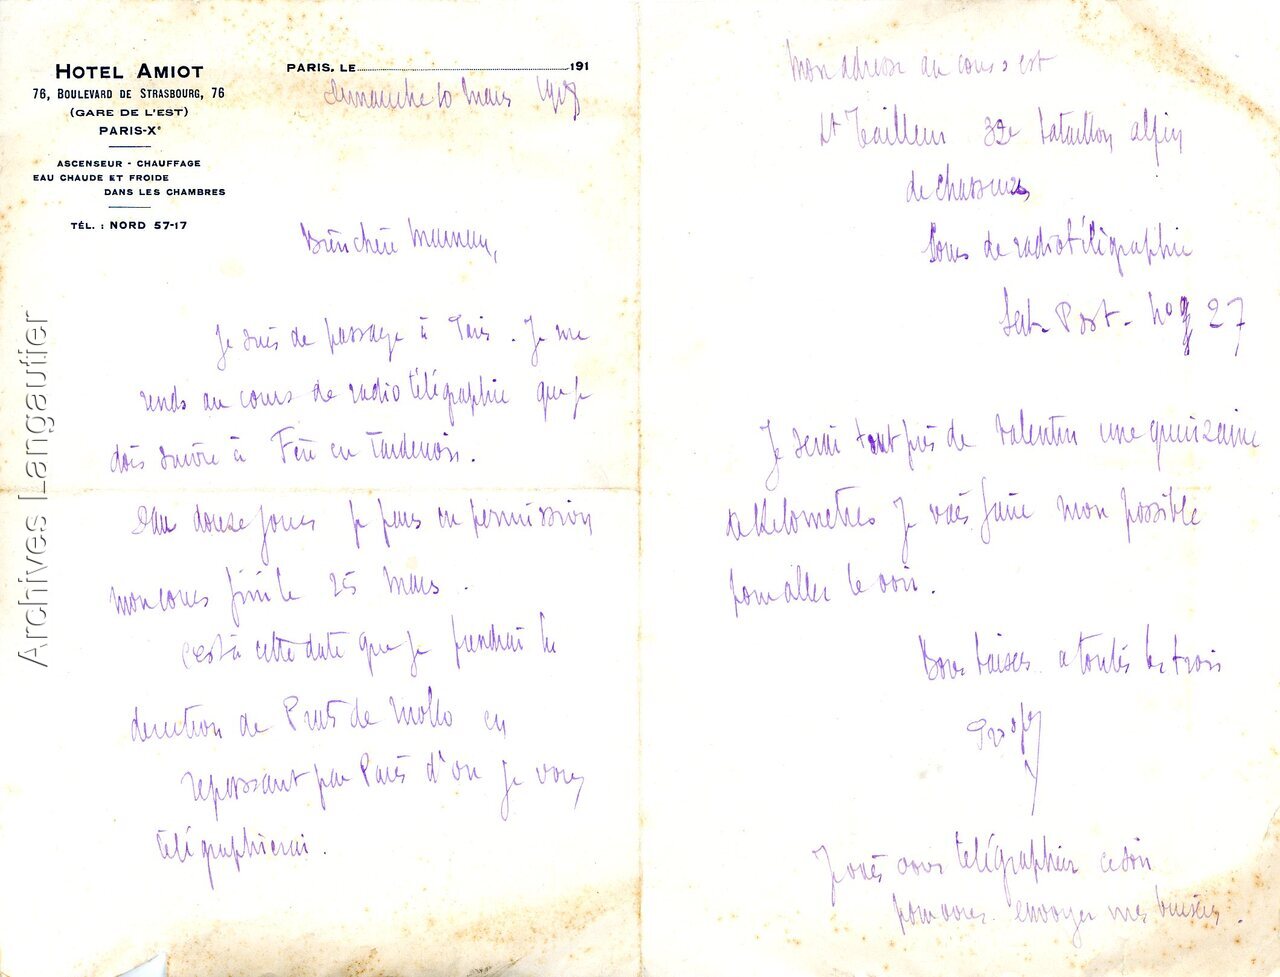 HOTEL AMIOT
76, BOULEVARD DE STRASBOURG, 76
(GARE DE L'EST)
PARIS-Xe
ASCENSEUR - CHAUFFAGE
EAU CHAUDE ET FROIDE
DANS LES CHAMBRES
TÉL. : NORD 57-17
PARIS, LE 191
dimanche 10 Mars 1918
Bien chère Maman,
Je suis de passage à Paris. Je me
rends au cours de radiotélégraphie que je
dois suivre à Fère en Tardenois.
Dans douze jours je pars en permission
mon cours finit le 25 Mars.
c'est à cette date que je prendrai la
direction de Prats de Mollo en
repassant par Paris d'où je vous
télégraphierai.
Mon adresse au cours est
Lt Tailleur 32e bataillon alpin
de chasseurs
Cours de radiotélégraphie
Sect. Post. No 27
Je serai tout près de Valentin une quinzaine
de kilomètres je vais faire mon possible
pour aller le voir.
Bons baisers à toutes les trois
Je vais vous télégraphier ce soir
pour vous envoyer mes baisers.
Archives Langautier